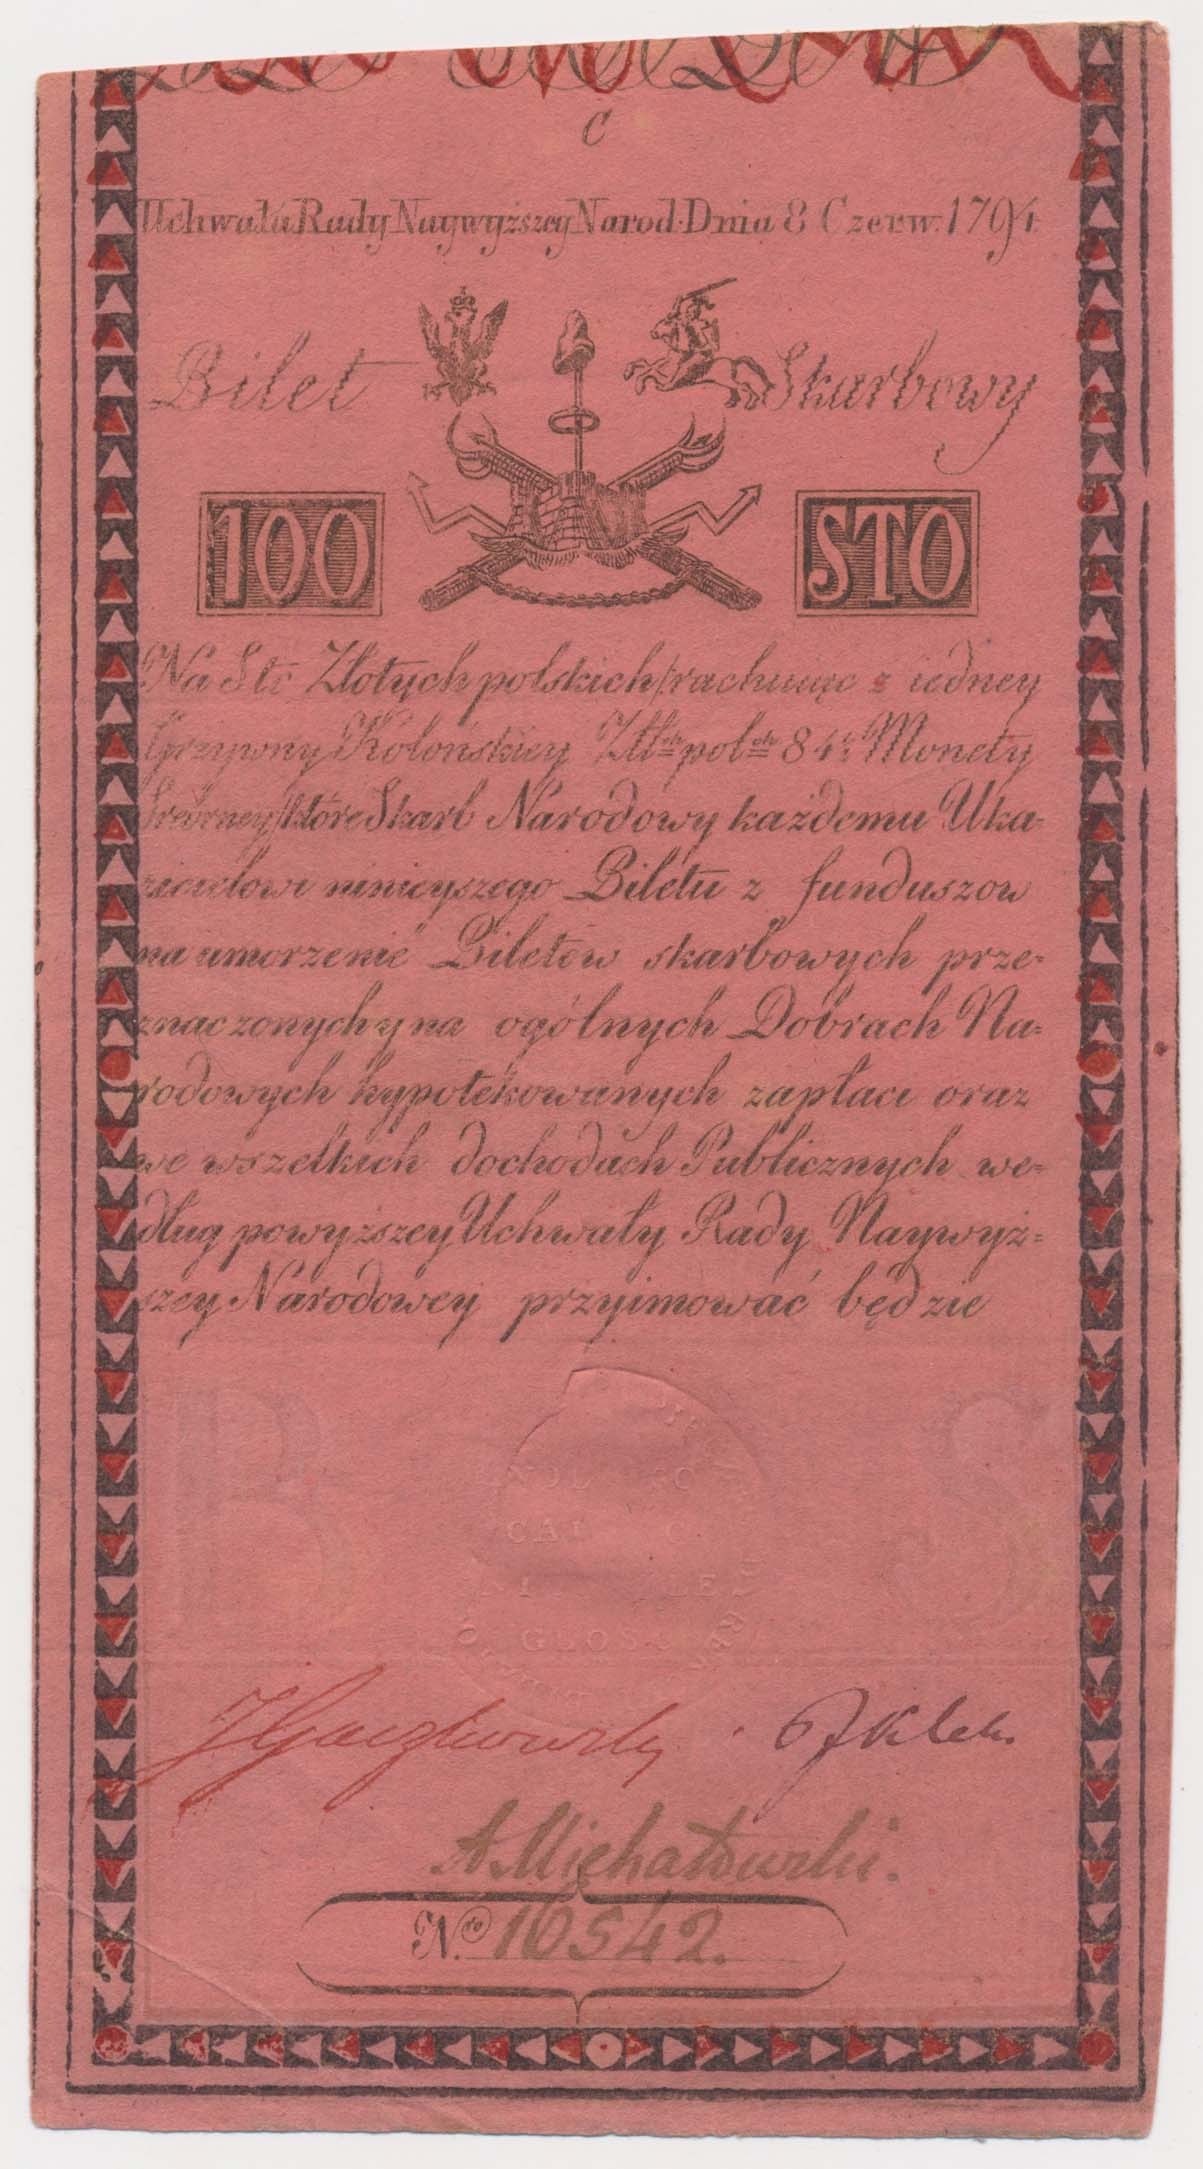 C
Uchwałą Rady Naywyższey Narod. Dnia 8 Czerw. 1794
Bilet Skarbowy
100 STO
Na Sto Złotych polskich/rachuiąc z iedney
Grzywny Kolońskiey Złłch polch 84 1/2 Monety
Srebrney/które Skarb Narodowy każdemu Uka-
zicielowi ninieyszego Biletu z funduszow
na umorzenie Biletow skarbowych prze-
znaczonych y na ogólnych Dobrach Na-
rodowych hypotekowanych zapłaci oraz
we wszelkich dochodach Publicznych we-
dług powyższey Uchwały Rady Naywyż-
szey Narodowey przyimować będzie
B S
A Michałowski.
Nro 10542.